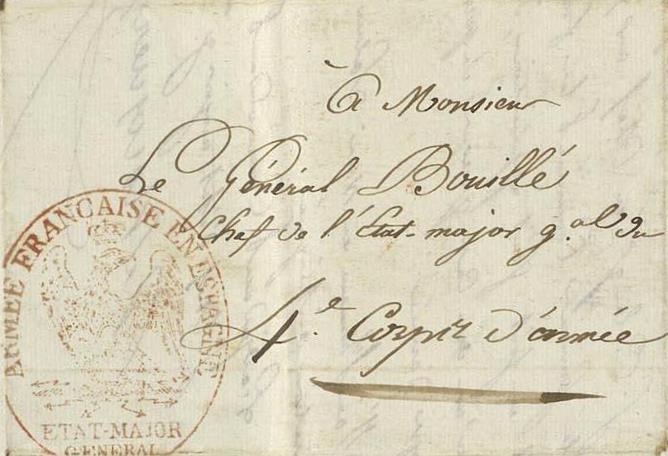 à Monsieur
Le Général Bouillé
Chef de l'État-major g.al du
4.e Corps d'armée
ARMÉE FRANCAISE EN ESPAGNE
ETAT-MAJOR
GENERAL